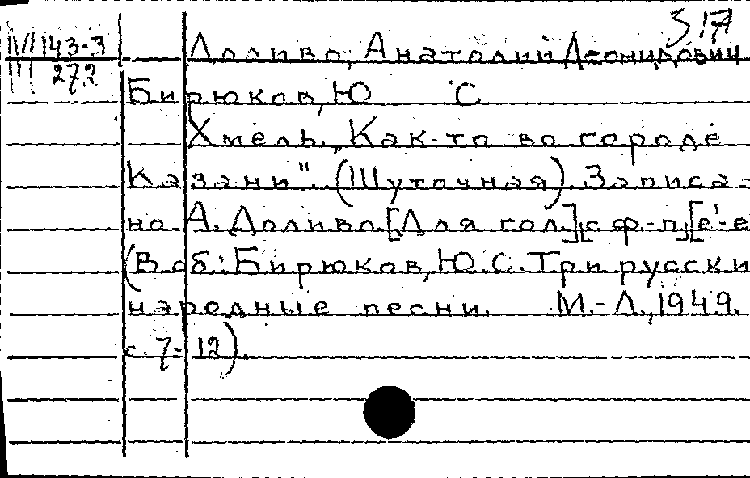 517
М 143-3 Доливо, Анатолий Леонидович
III 272
Бирюков, Ю С
Хмель. „Как-то во городе
Казани". (Шуточная). Записа-
но А. Доливо. [Для гол.] с ф.-п. [e'-e
(В сб.: Бирюков, Ю.С. Три русски
народные песни. М.-Л., 1949.
с. 7-12).